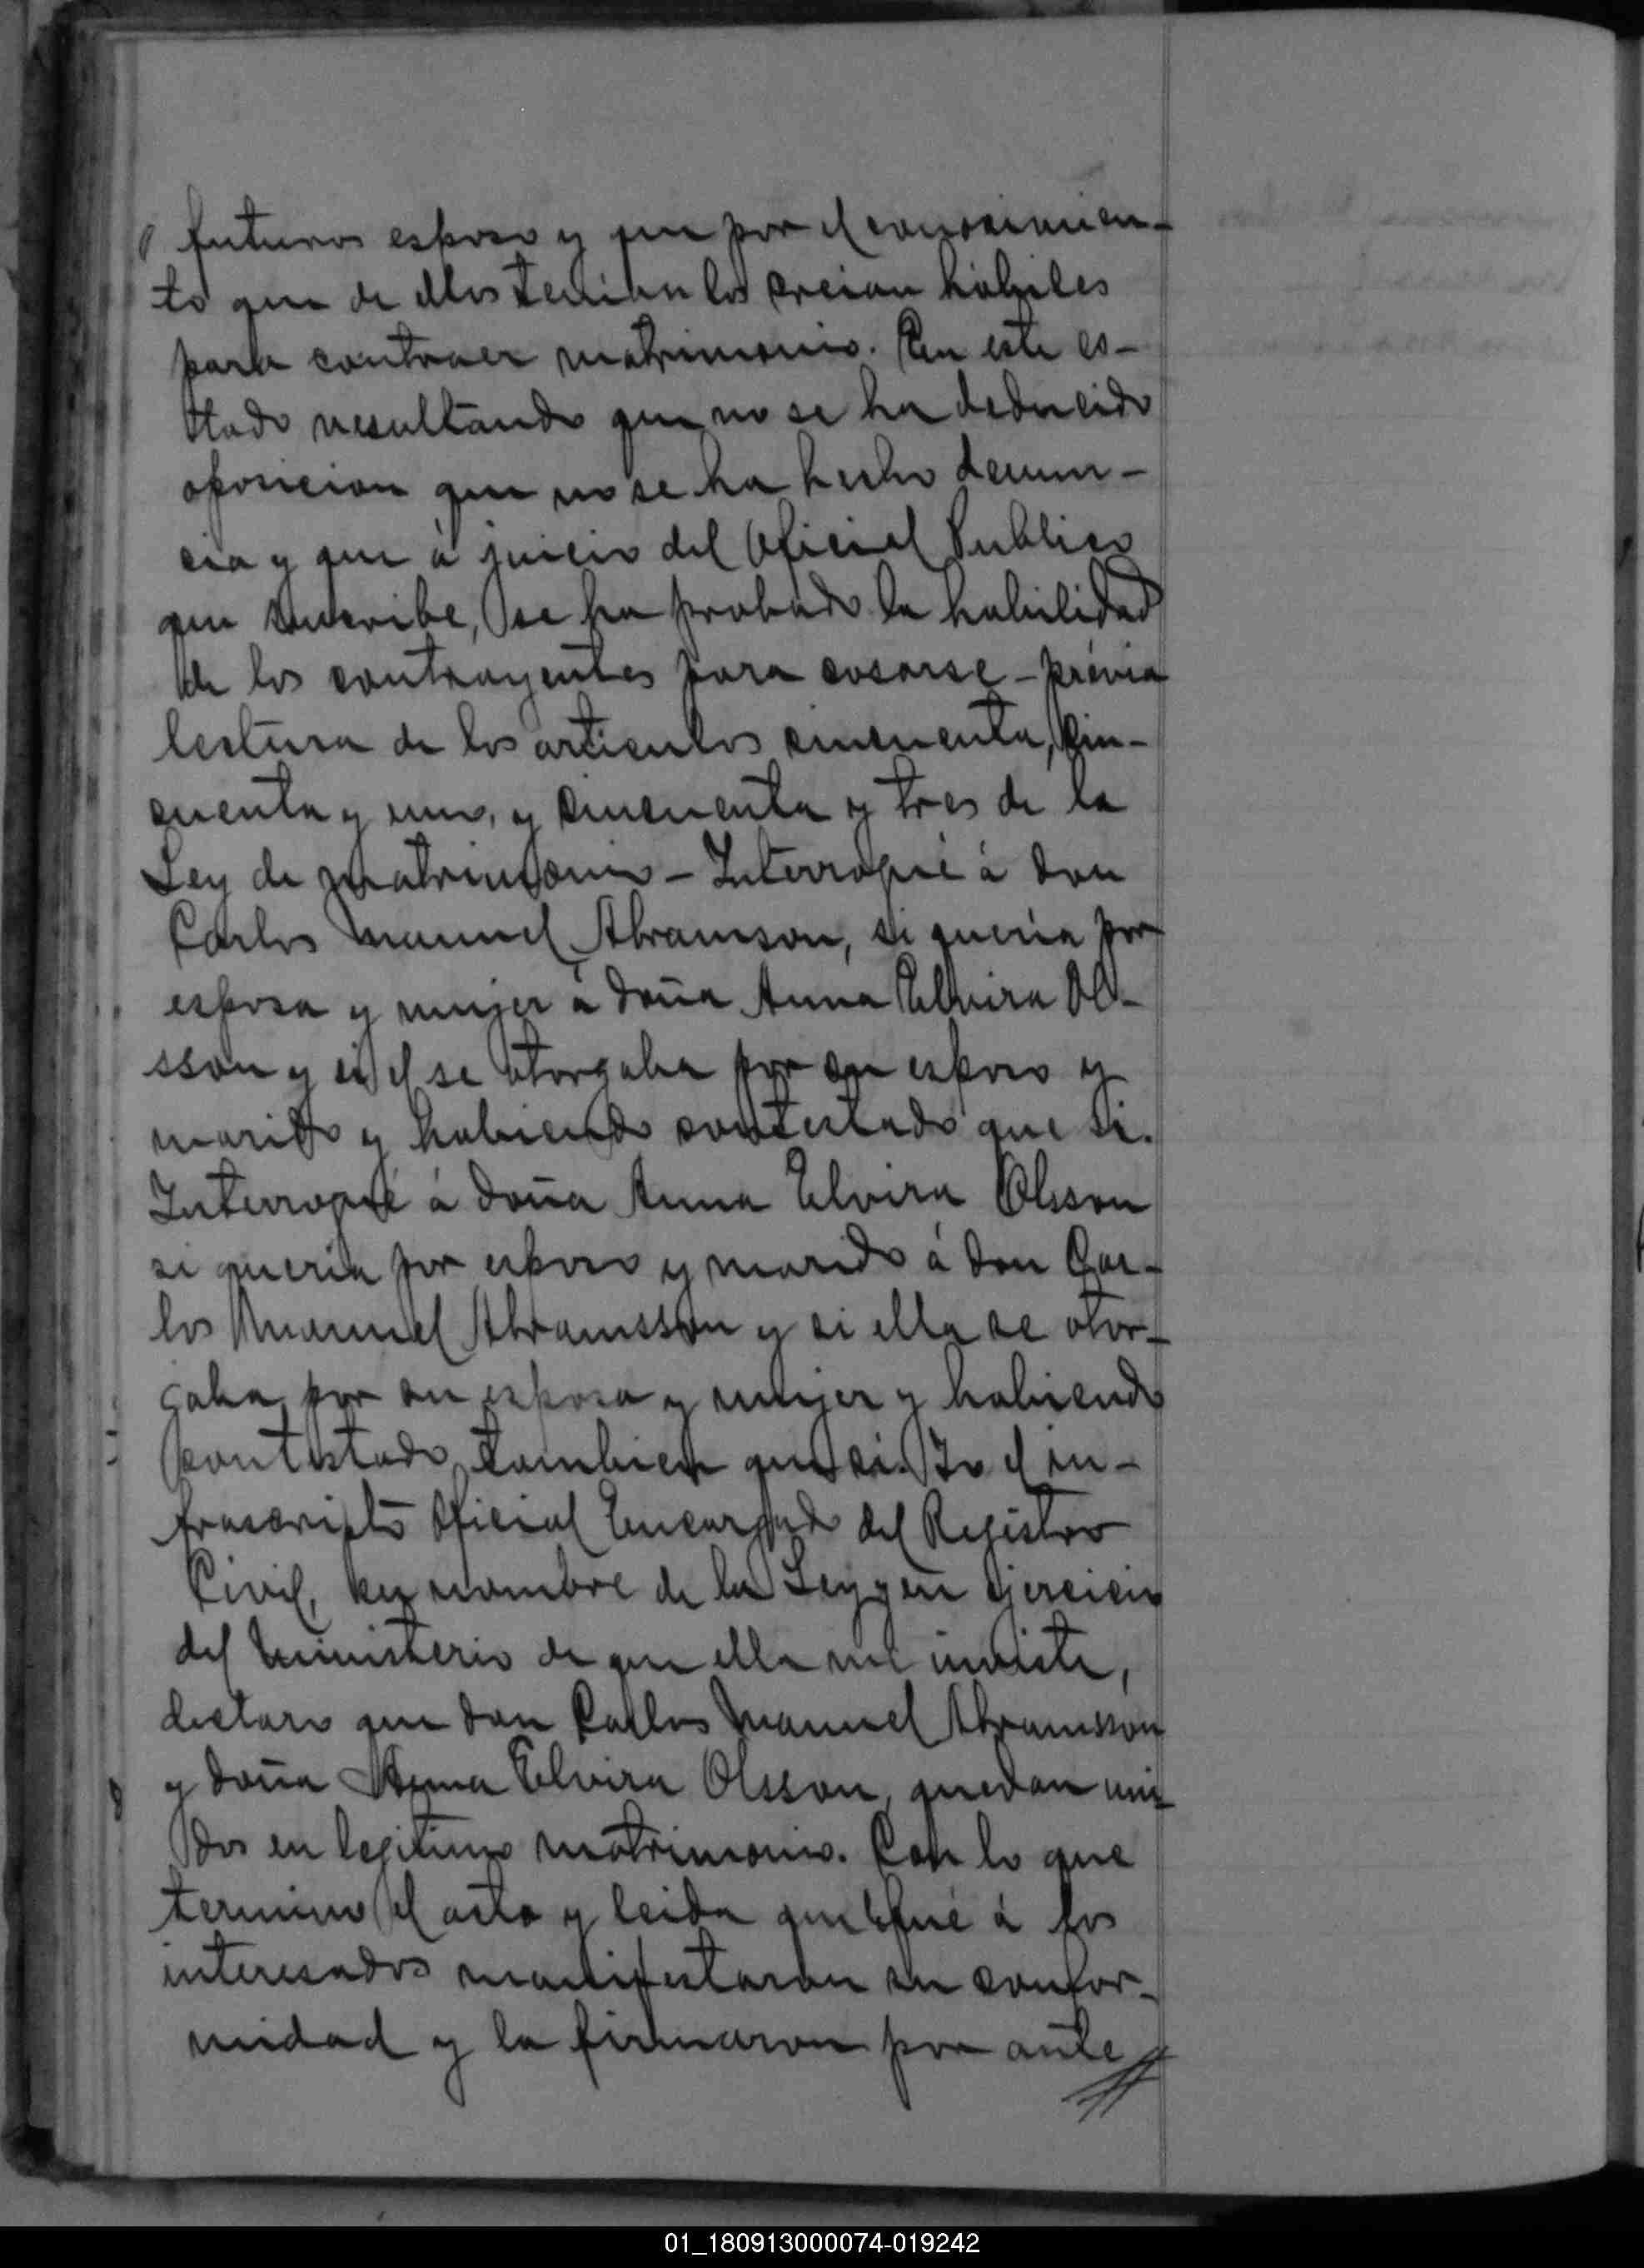 futuros esposo y que por el conocimien-
to que de ellos tenian los creian hábiles
para contraer matrimonio. En este es-
tado resultando que no se ha deducido
oposicion que no se ha hecho denun-
cia y que á juicio del Oficial Publico
que suscribe, se ha probado la habilidad
de los contrayentes para casarse - prévia
lectura de los articulos cincuenta, cin-
cuenta y uno, y cincuenta y tres de la
Ley de matrimonio - Interrogué á don
Carlos Manuel Abramson, si queria por
esposa y mujer á doña Anna Elvira Ol-
sson y si el se otorgaba por su esposo y
marido y habiendo contestado que si.
Interrogué á doña Anna Elvira Olsson
si queria por esposo y marido á don Car-
los Manuel Abramsson y si ella se otor-
gaba por su esposa y mujer y habiendo
contestado tambien que si. Yo el in-
frascripto Oficial Encargado del Registro
Civil, en nombre de la Ley y en ejercicio
del ministerio de que ella me inviste,
declaro que don Carlos Manuel Abramsson
y doña Anna Elvira Olsson, quedan uni-
dos en legitimo matrimonio. Con lo que
termino el acto y leida que fué á los
interesados manifestaron su confor-
midad y la firmaron por ante
01_180913000074-019242